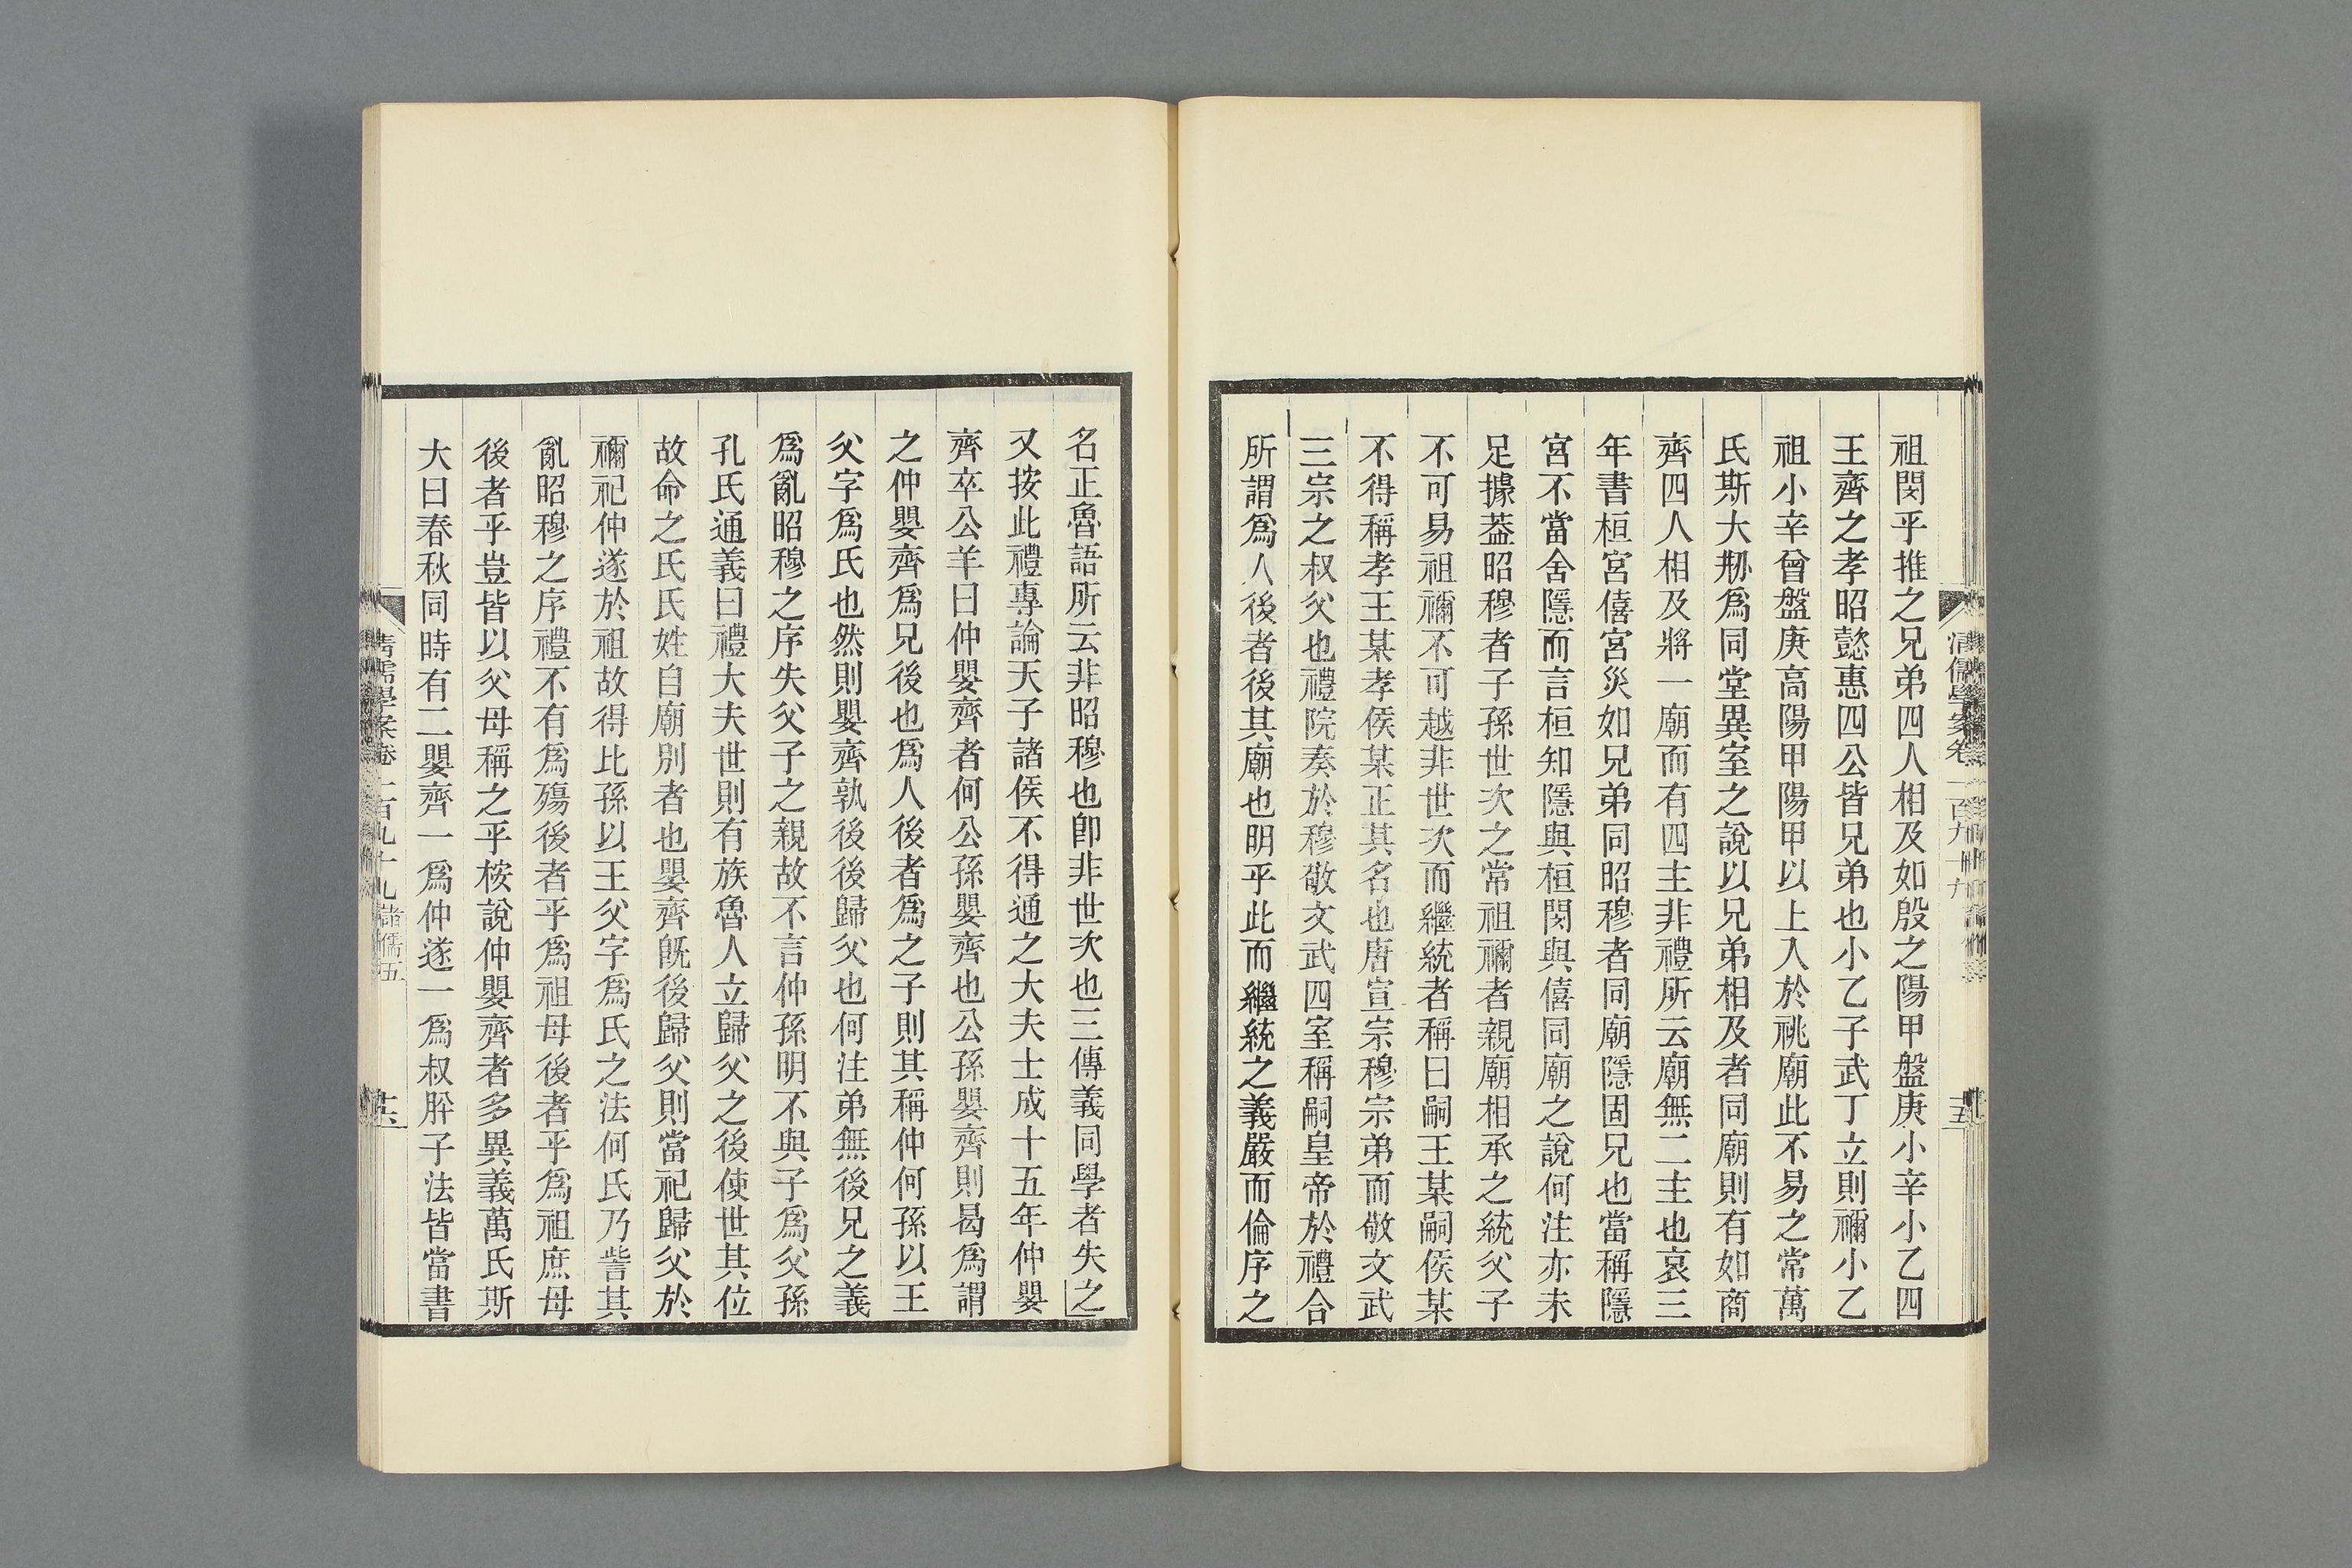 祖閔乎推之兄弟四人相及如殷之陽甲盤庚小辛小乙四
王齊之孝昭懿惠四公皆兄弟也小乙子武丁立則禰小乙
祖小辛曾盤庚高陽甲陽甲以上入於祧廟此不易之常萬
氏斯大剏爲同堂異室之說以兄弟相及者同廟則有如商
齊四人相及將一廟而有四主非禮所云廟無二主也哀三
年書桓宮僖宮災如兄弟同昭穆者同廟隱固兄也當稱隱
宮不當舍隱而言桓知隱與桓閔與僖同廟之說何注亦未
足據葢昭穆者子孫世次之常祖禰者親廟相承之統父子
不可易祖禰不可越非世次而繼統者稱曰嗣王某嗣侯某
不得稱孝王某孝侯某正其名也唐宣宗穆宗弟而敬文武
三宗之叔父也禮院奏於穆敬文武四室稱嗣皇帝於禮合
所謂爲人後者後其廟也明乎此而繼統之義嚴而倫序之
清儒學案卷一百九十九
十五
名正魯語所云非昭穆也卽非世次也三傳義同學者失之
又按此禮專論天子諸侯不得通之大夫士成十五年仲嬰
齊卒公羊曰仲嬰齊者何公孫嬰齊也公孫嬰齊則曷爲謂
之仲嬰齊爲兄後也爲人後者爲之子則其稱仲何孫以王
父字爲氏也然則嬰齊孰後後歸父也何注弟無後兄之義
爲亂昭穆之序失父子之親故不言仲孫明不與子爲父孫
孔氏通義曰禮大夫世則有族魯人立歸父之後使世其位
故命之氏氏姓自廟別者也嬰齊旣後歸父則當祀歸父於
禰祀仲遂於祖故得比孫以王父字爲氏之法何氏乃訾其
亂昭穆之序禮不有爲殤後者乎爲祖母後者乎爲祖庶母
後者乎豈皆以父母稱之乎桉說仲嬰齊者多異義萬氏斯
大曰春秋同時有二嬰齊一爲仲遂一爲叔肸子法皆當書
清儒學案卷一百九十九諸儒五